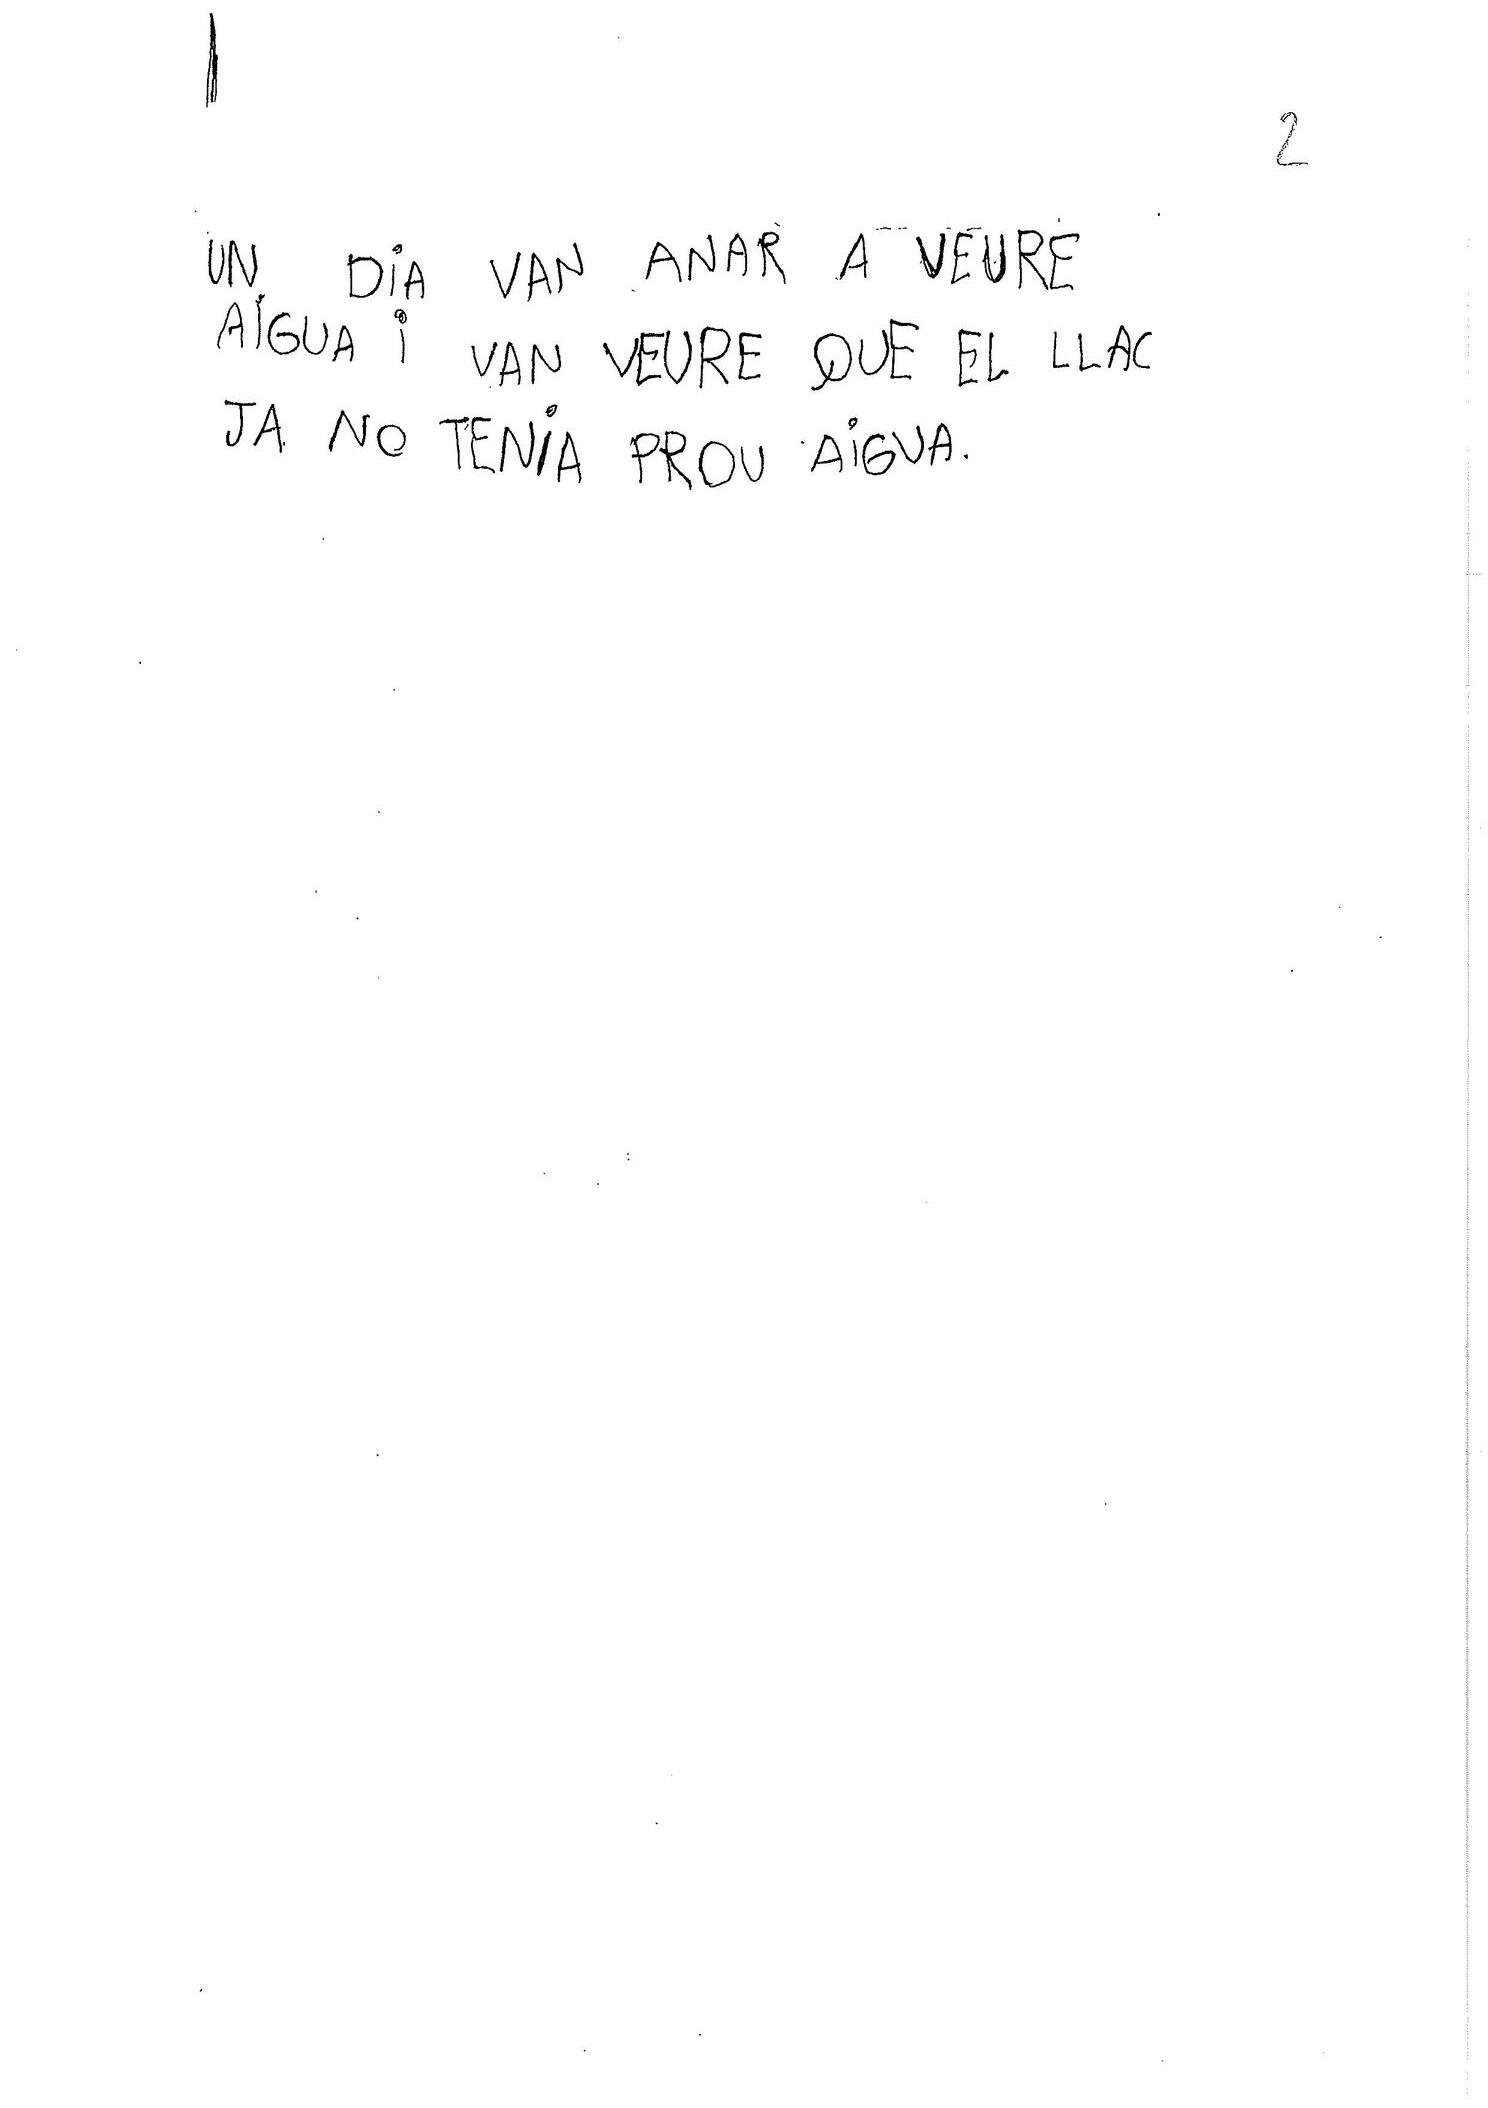 2
UN DiA VAN ANAR A VEURE
AIGUA i VAN VEURE QUE EL LLAC
JA NO TENiA PROU AiGUA.